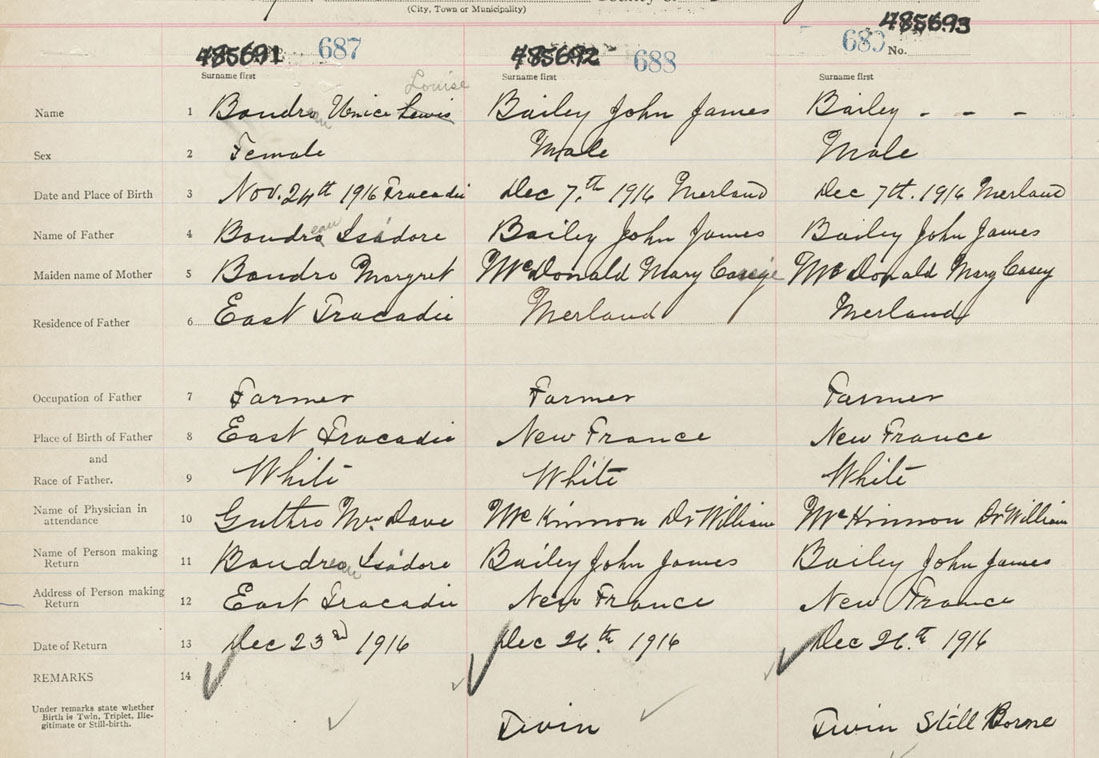 (City, Town or Municipality)
485691 687 485692 688 485693 689 No.
Surname first Surname first Surname first
Louise
Name 1 Boudro eau Unice Lewis Bailey John James Bailey - - -
Sex 2 Female Male Male
Date and Place of Birth 3 Nov. 24th 1916 Tracadie Dec 7.th 1916 Merland Dec 7th. 1916 Merland
Name of Father 4 Boudro eau Isadore Bailey John James Bailey John James
Maiden name of Mother 5 Boudro Margret McDonald Mary Casey McDonald Mary Casey
Residence of Father 6 East Tracadie Merland Merland
Occupation of Father 7 Farmer Farmer Farmer
Place of Birth of Father 8 East Tracadie New France New France
and
Race of Father. 9 White White White
Name of Physician in
attendance 10 Guthro Mrs Dave McKinnon Dr William McKinnon Dr William
Name of Person making
Return 11 Boudro eau Isadore Bailey John James Bailey John James
Address of Person making
Return 12 East Tracadie New France New France
Date of Return 13 Dec 23rd 1916 Dec 26.th 1916 Dec 26.th 1916
REMARKS 14
Under remarks state whether
Birth is Twin, Triplet, Ille-
gitimate or Still-birth.
Twin Twin Still Borne